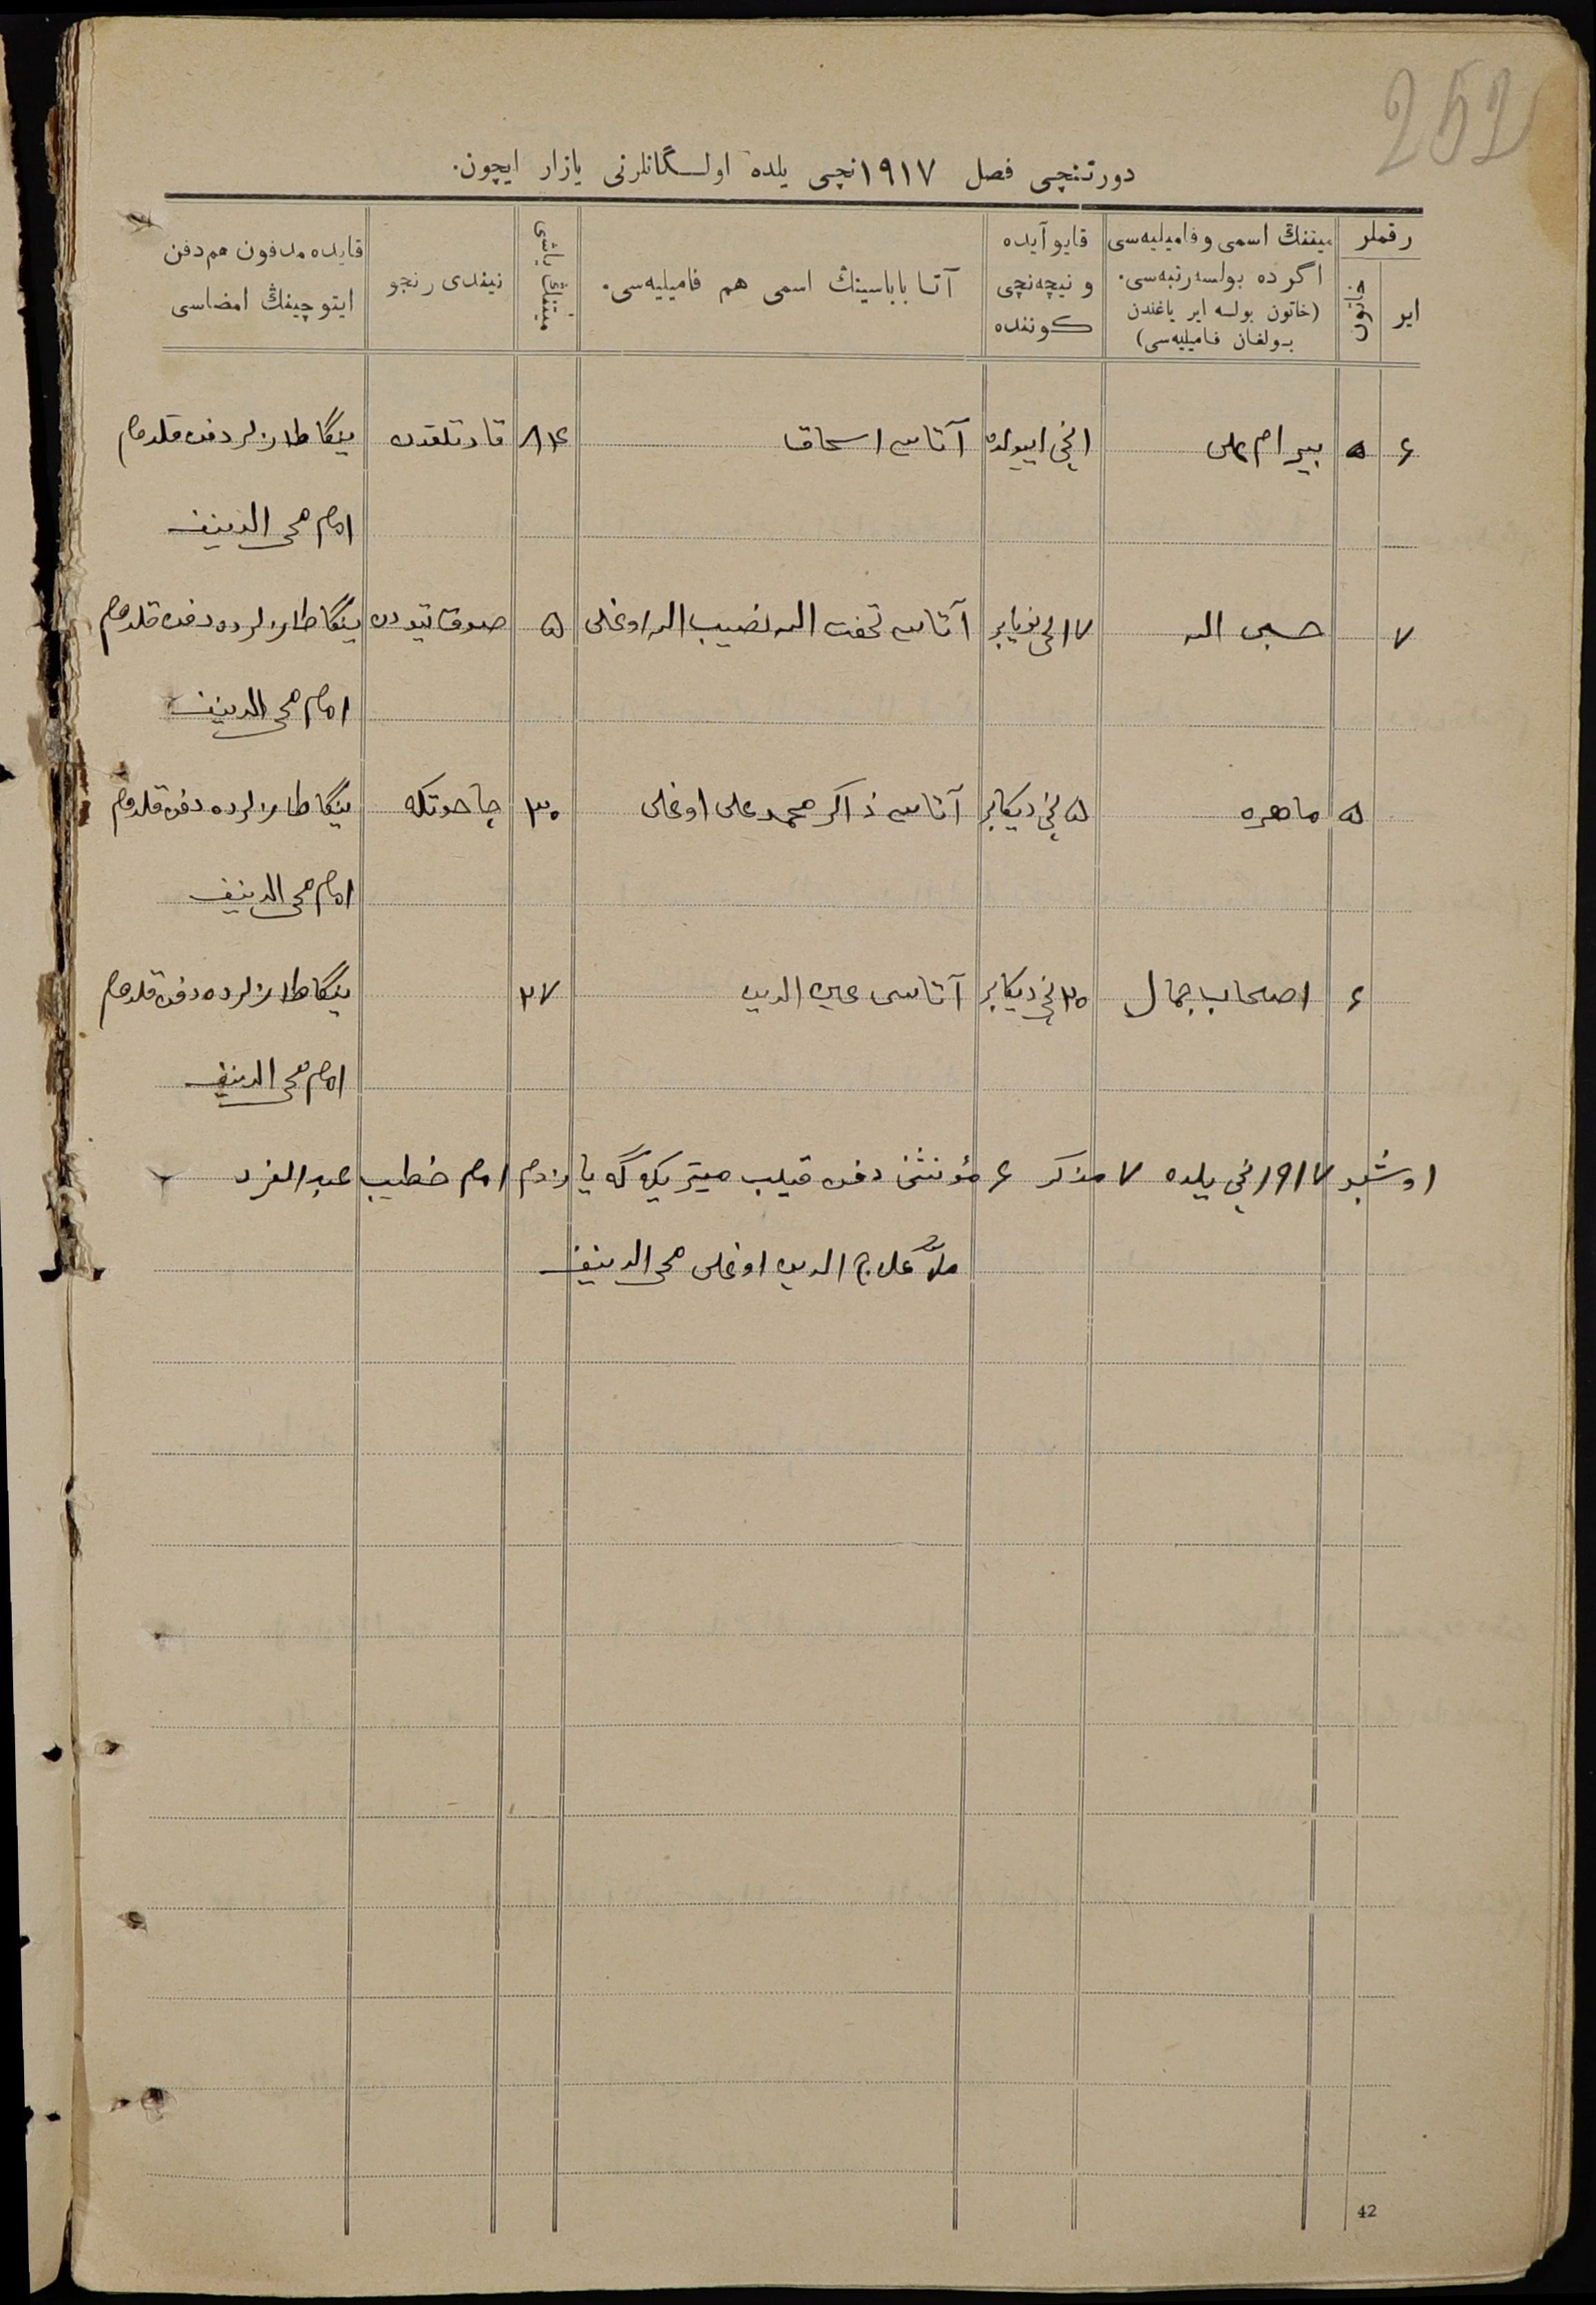 252
دورتنچی فصل ۱۹۱۷نچی یلده اولـگانلرنی یازار ایچون.
رقملر
ایر
خاتون
میتنڭ اسمی و فامیلیه‌سی
اگر ده بولسه رتبه‌سی.
(خاتون بولسه ایر یاغندن
بولغان فامیلیه‌سی)
قایو آیده
و نیچه‌نچی
کوننده
آتا باباسینڭ اسمی هم فامیلیه‌سی.
میتنڭ یاشی
نیندی رنجو
قایده مدفون هم دفن
ایتوچینڭ امضاسی
۶ بیرام علی ۱نچی اییولده آتاسی اسحاق ۸۱۴ قارتلقدن ینگا طازلرده دفن قلدم
امام محی الدینف
۷ حسبی الله ۱۷نچی نویابر آتاسی تحفت الله نصیب الله اوغلی ۵ ینگا طازلرده دفن قلدم
امام محی الدینف
۵ ماهره ۵نچی دیکابر آتاسی ذاکر محمد علی اوغلی ۳۰ چاحوتکه ینگا طازلرده دفن قلدم
امام محی الدینف
۶ اصحاب جمال ۲۰نچی دیکابر آتاسی عین الدین ۲۷ ینگا طازلرده دفن قلدم
امام محی الدینف
اوشبو ۱۹۱۷نچی یلده ۷ مذکر ۶ مؤنثنی دفن قیلب میتریکه گه یازدم امام خطیب
ملا علاج الدین اوغلی محی الدینف
42